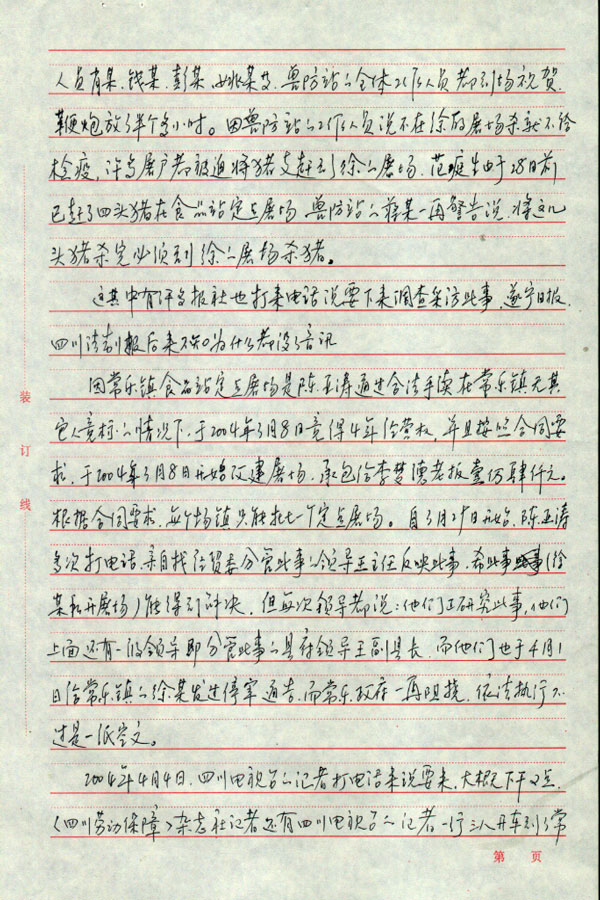 人员肖某、钱某、彭某、姚某及兽防站的全体工作人员都到场祝贺,
鞭炮放了半个多小时。因兽防站的工作人员说不在徐的屠场杀就不给
检疫,许多屠户都被迫将猪支赶到徐的屠场,范 生由于28日前
已赶了四头猪在食品站定点屠场,兽防站的蒋某一再警告说,将这几
头猪杀完必须到徐的屠场杀猪。
这其中有许多报社也打来电话说要下来调查采访此事,遂宁日报,
四川法制报后来不知为什么都没了音讯
因常乐镇食品站定点屠场是陈玉涛通过合法手续在常乐镇无其
它人竞标的情况下,于2004年3月8日竞得4年经营权,并且按照合同要
求,于2004年3月8日开始改建屠场,承包给李 老板壹万肆仟元。
根据合同要求,每个场镇只能批一个定点屠场。自3月29日开始,陈玉涛
多次打电话、亲自找经贸委分管此事的领导王主任反映此事,希此事(徐
某私开屠场)能得到解决,但每次领导都说:他们正研究此事,他们
上面还有一级领导即分管此事的县府领导王副县长,而他们也于4月1
日给常乐镇的徐某发过停宰通告,而常乐政府一再阻挠,依法执行不
过是一纸空文。
2004年4月4日,四川电视台的记者打电话来说要来,大概下午2点,
《四川劳动保障》杂志社记者还有四川电视台的记者一行三人开车到了常
装订线
第 页